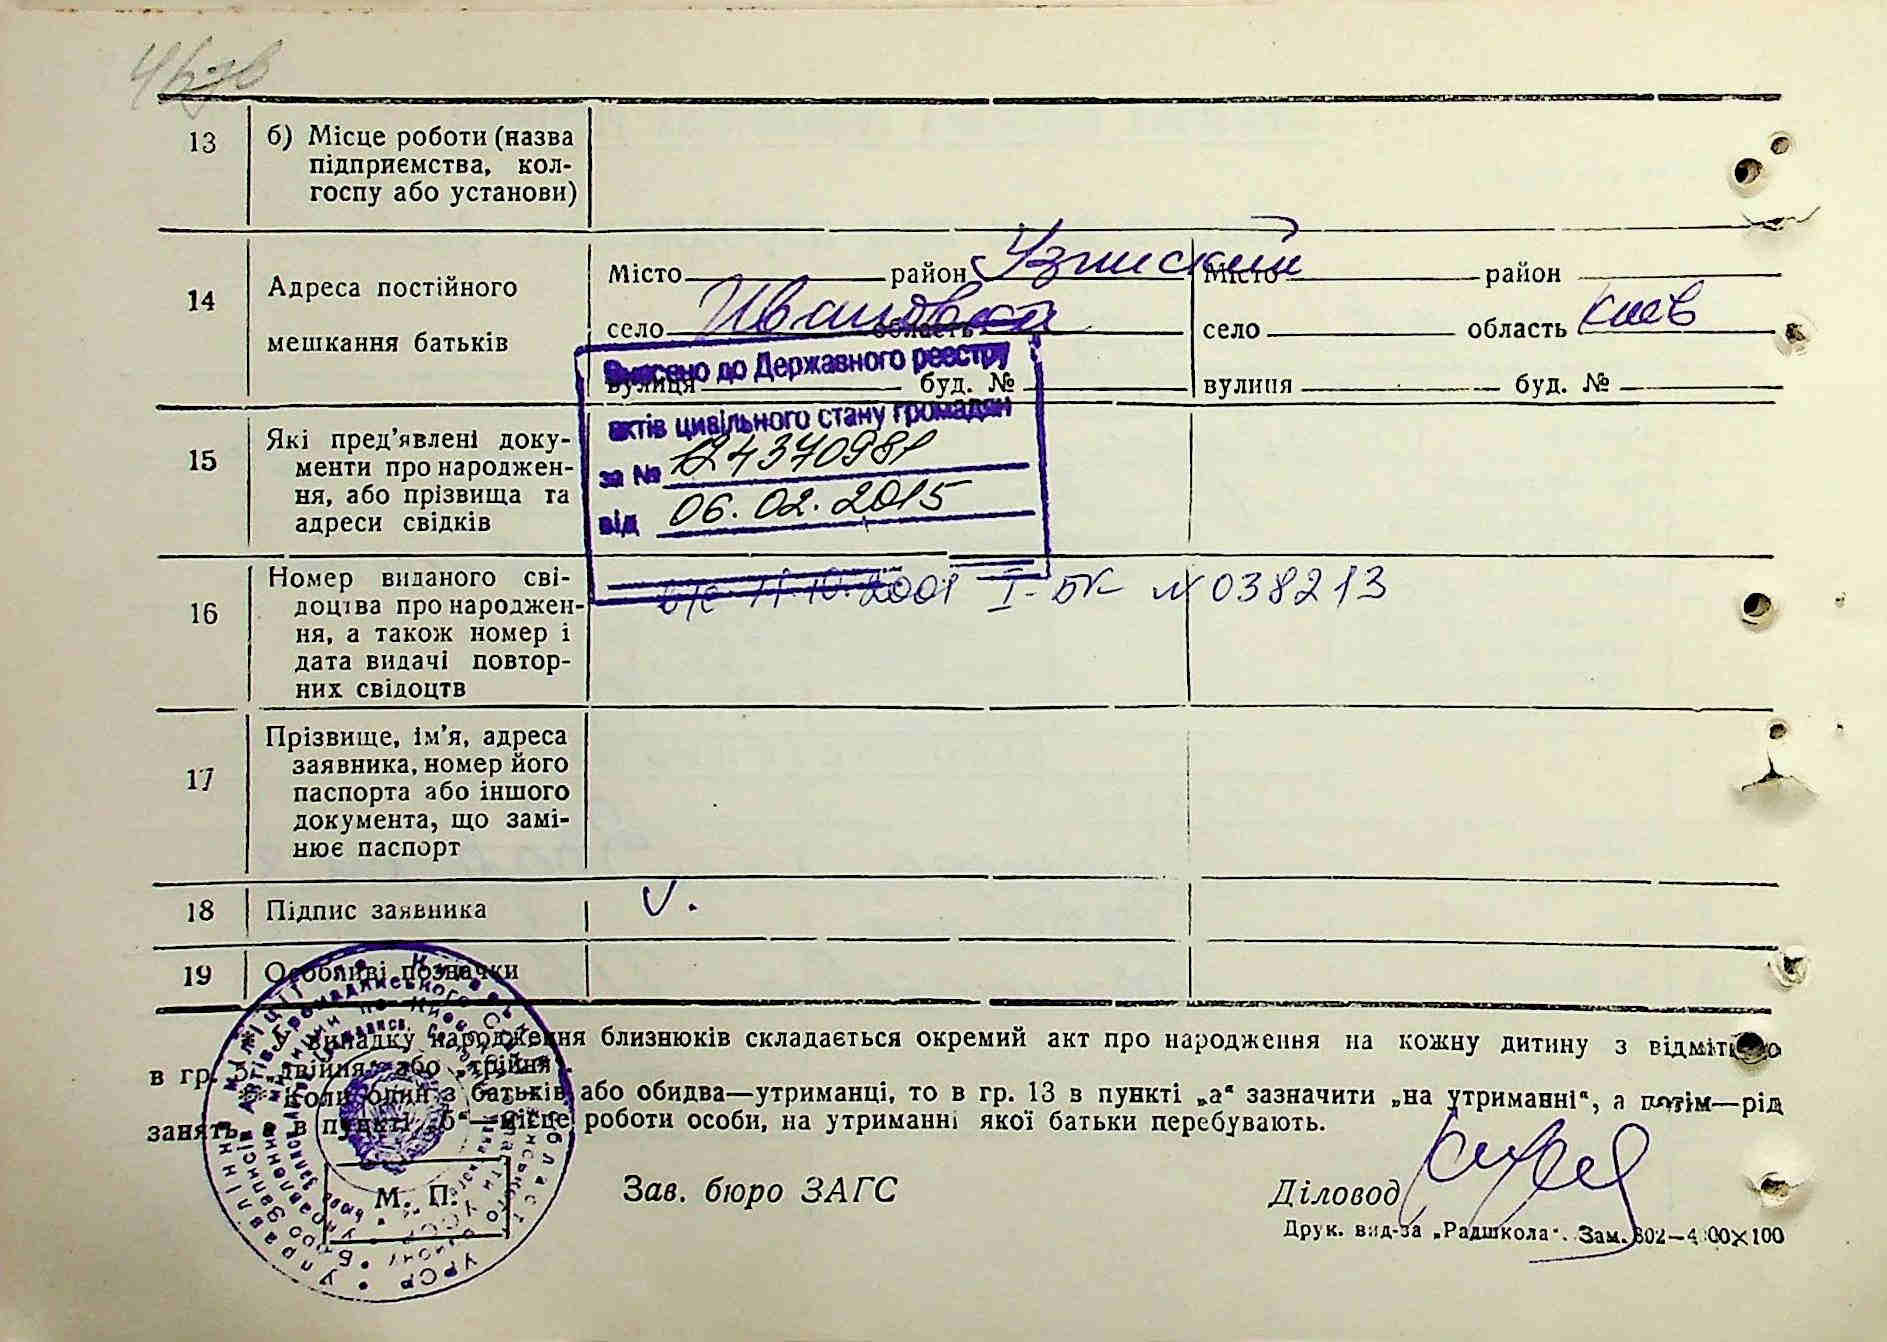 13
б) Місце роботи (назва
підприємства, кол-
госпу або установи)
14
Адреса постійного
мешкання батьків
Місто район Узинский
село Ивановка область
вулиця буд. №
Місто район
село область Киев
вулиця буд. №
Внесено до Державного реєстру
актів цивільного стану громадян
за №
від 06.02.2015
15
Які пред’явлені доку-
менти про народжен-
ня, або прізвища та
адреси свідків
16
Номер виданого сві-
доцтва про народжен-
ня, а також номер і
дата видачі повтор-
них свідоцтв
11.10.2001 I-БК № 038213
17
Прізвище, ім’я, адреса
заявника, номер його
паспорта або іншого
документа, що замі-
нює паспорт
18
Підпис заявника
19
Особливі позначки
У випадку народження близнюків складається окремий акт про народження на кожну дитину з відміткою
в гр. 5 „двійня“ або „трійня“.
Коли один з батьків або обидва—утриманці, то в гр. 13 в пункті „а“ зазначити „на утриманні“, а потім—рід
занять, в пункті „б“—місце роботи особи, на утриманні якої батьки перебувають.
М. П.
Зав. бюро ЗАГС
Діловод
Друк. вид-ва „Радшкола“. Зам. 802—4000×100